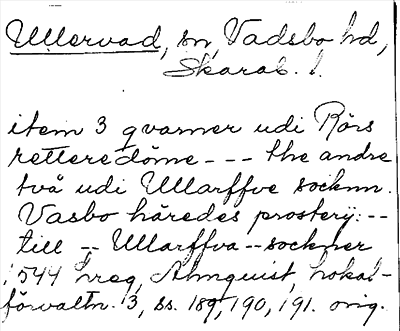 Ullervad, sn, Vadsbo hd,
Skarab. l.
item 3 qvarner udi Rörs
retteredöme --- the andre
två udi Ullarffve socknn.
Vasbo häredes prostery: --
till -- Ullarffva -- sockner
1544 hreg, Almquist, Lokal-
förvaltn. 3, ss. 189, 190, 191. orig.